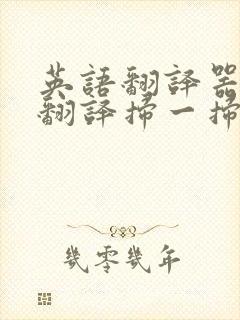 英語翻譯器
翻譯掃一掃
幾零幾年